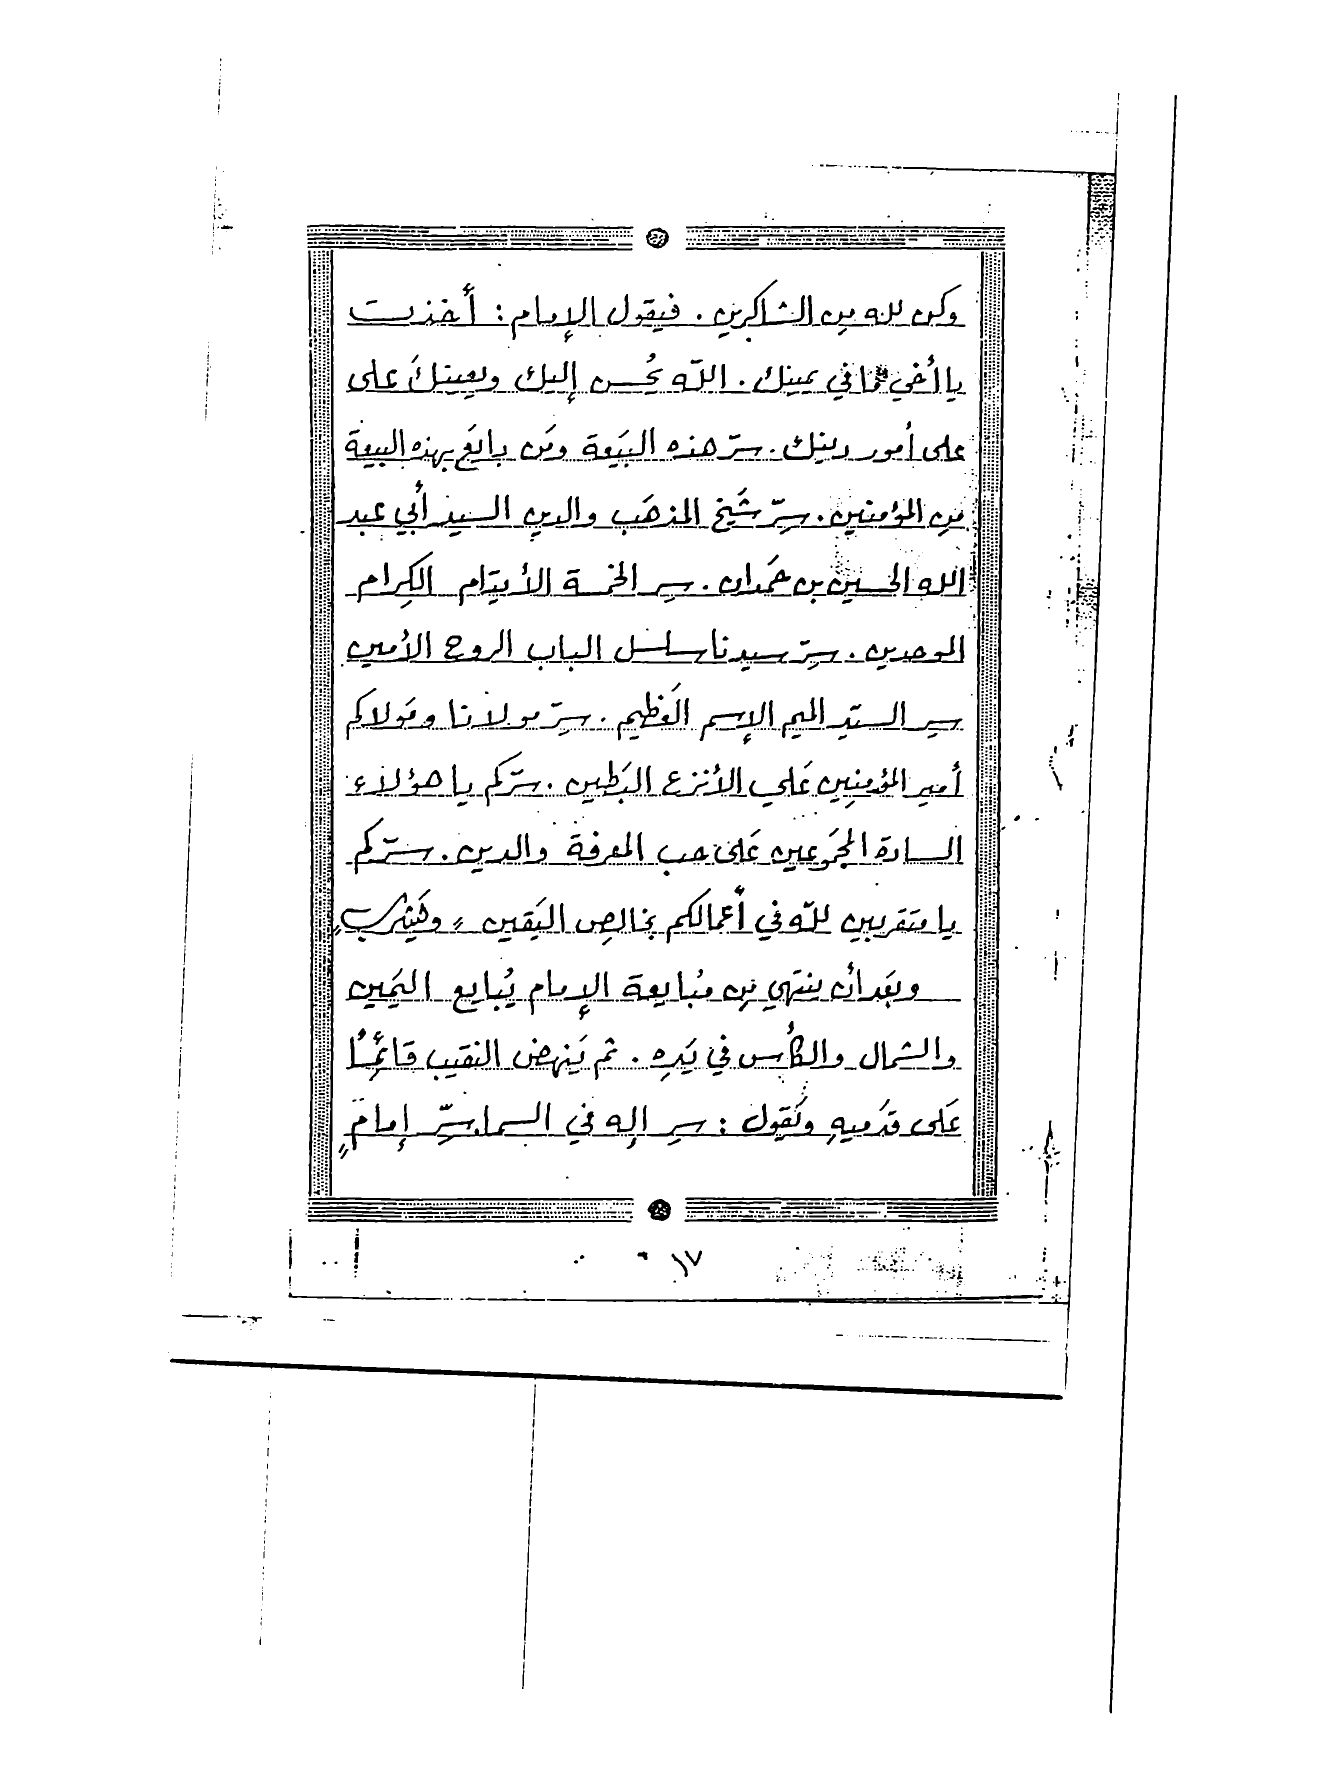 وكن لله من الشاكرين . فيقول الإمام : أخذت
يا أخي ما في يمينك . اللّه يُحسن إليك ويعينكَ على
على أمور دينك . سرّ هذه البَيعة ومَن بايَع بهذه البيعة
مِن المؤمنين . سِرّ شَيخ المذهَب والدين السيد أبي عبد
الله الحسين بن حَمدان . سِر الخمسة الأيتام الكِرام
الموحدين . سِرّ سيدنا سلسل الباب الروح الأمين
سِر السيّد الميم الإسم العَظيم . سِرّ مولانا ومَولاكم
أمير المؤمنِين عَلي الأنزع البَطين . سرّكم يا هؤلاء
السادة المجَموعين عَلى حب المعرفة والدين . سرّكم
يا متقربين للّه في أعمالكم بخالِص اليَقين ، وَيَشرب
وبَعد أن ينتهي مِن مُبايعة الإمام يُبايع اليَمين
والشمال والكأس في يَدِه . ثم يَنهض النقيب قائِمًا
عَلى قدَميهِ ويَقول : سِر إله في السما سِرّ إمامٍ
١٧